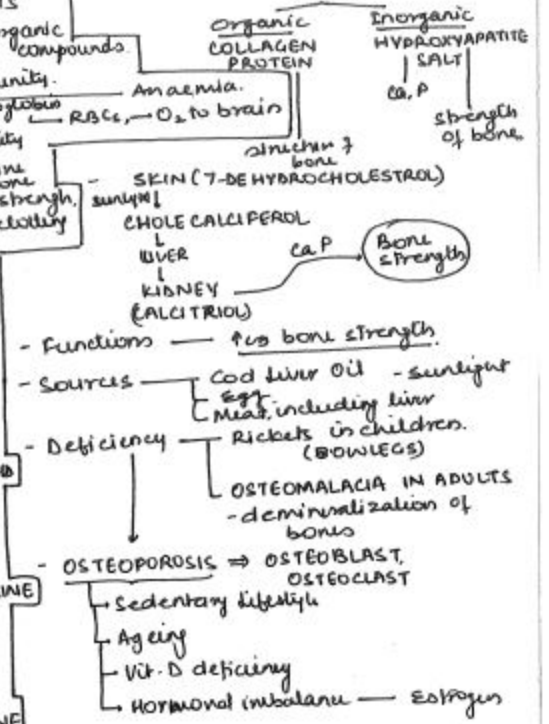 Organic
COLLAGEN
PROTEIN
structure of
bone
Inorganic
HYDROXYAPATITE
SALT
Ca, P
strength
of bone
compounds.
Anaemia.
RBCs, → O₂ to brain
- SKIN (7-DEHYDROCHOLESTROL)
sunlight ↓
CHOLECALCIFEROL
↓
LIVER
↓
KIDNEY
(CALCITRIOL)
Ca P
Bone
strength
- Functions — ↑es bone strength.
- Sources — Cod Liver Oil - sunlight
Egg
Meat, including liver
- Deficiency — Rickets in children.
(BOWLEGS)
OSTEOMALACIA IN ADULTS
- demineralization of
bones
- OSTEOPOROSIS ⇒ OSTEOBLAST,
OSTEOCLAST
→ Sedentary lifestyle
→ Ageing
→ Vit. D deficiency
→ Hormonal imbalance — Estrogen